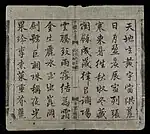 天地玄黃宇宙洪荒
日月盈昃辰宿列張
寒來暑往秋收冬藏
閏餘成歲律呂調陽
雲騰致雨露結為霜
金生麗水玉出崑岡
劍號巨闕珠稱夜光
果珍李柰菜重芥薑